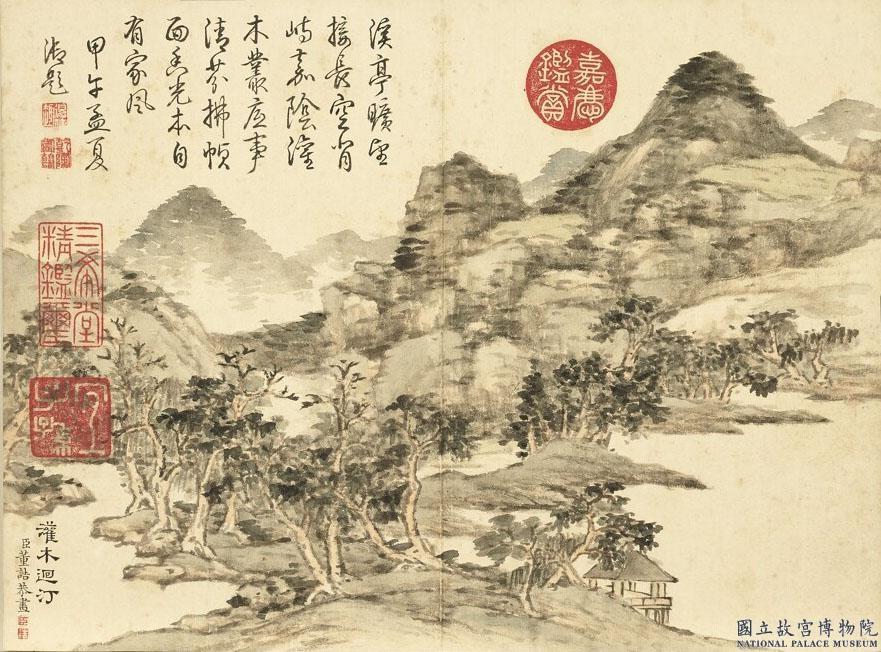 溪亭曠望
接長空背
嶠嘉陰灌
木叢底事
清芬拂幀
面香光本自
有家風
甲午孟夏
御題
嘉慶
鑑賞
三希堂
精鑑璽
宜
子孫
灌木迴汀
臣董誥恭畫
國立故宮博物院
NATIONAL PALACE MUSEUM